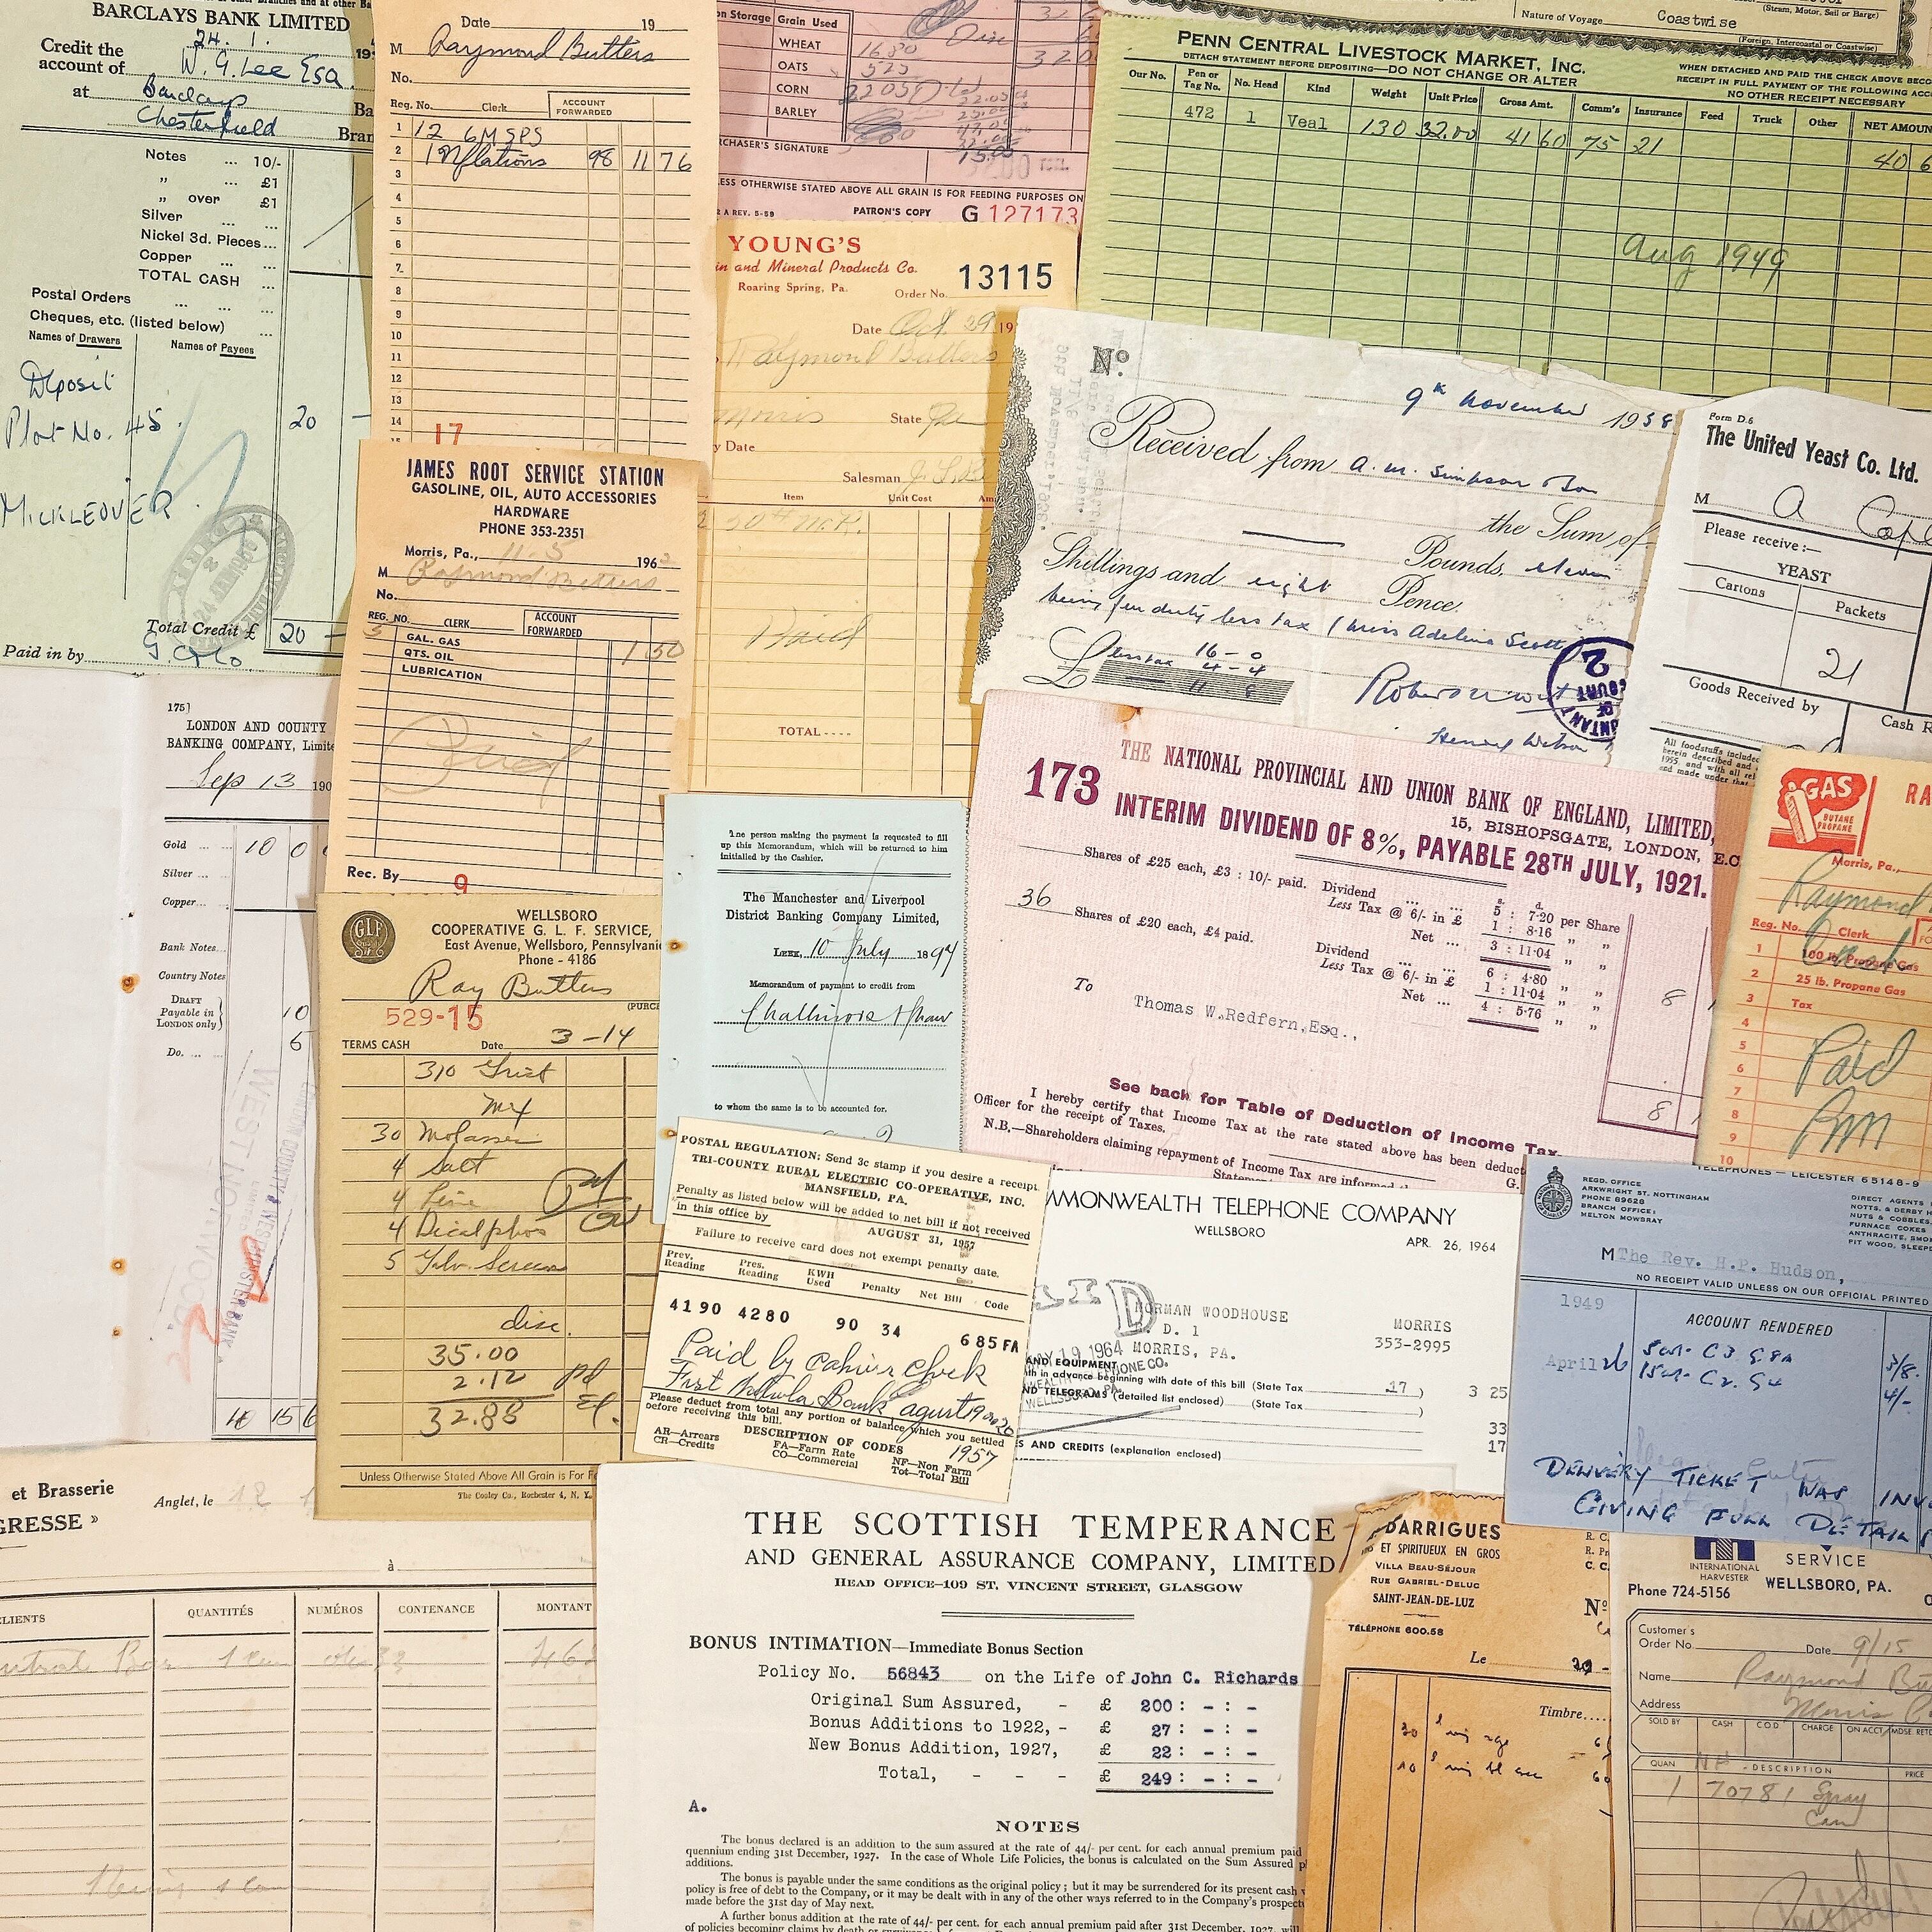 BARCLAYS BANK LIMITED
24. 1.
Credit the
account of W. G. Lee Esq
at Barclays
Chesterfield
Notes ... 10/-
" ... £1
" over £1
Silver ...
Nickel 3d. Pieces ...
Copper ...
TOTAL CASH
Postal Orders ...
Cheques, etc. (listed below) ...
Names of Drawers Names of Payees
Deposit
Plot No. 45 20 -
MICKLEOVER
Total Credit £ 20 -
Paid in by
Date 19
M Raymond Butters
No.
Reg. No. Clerk ACCOUNT FORWARDED
1 12 6M SPS
2 Inflations 98 11 76
3
4
5
6
7
8
9
10
11
12
13
14
15
17
on Storage Grain Used
WHEAT
OATS
CORN
BARLEY
PURCHASER'S SIGNATURE
LESS OTHERWISE STATED ABOVE ALL GRAIN IS FOR FEEDING PURPOSES ON
2 A REV. 5-59 PATRON'S COPY G 127173
Nature of Voyage Coastwise
(Steam, Motor, Sail or Barge)
(Foreign, Intercoastal or Coastwise)
PENN CENTRAL LIVESTOCK MARKET, INC.
DETACH STATEMENT BEFORE DEPOSITING—DO NOT CHANGE OR ALTER
WHEN DETACHED AND PAID THE CHECK ABOVE BECO
RECEIPT IN FULL PAYMENT OF THE FOLLOWING ACC
NO OTHER RECEIPT NECESSARY
Our No. Pen or Tag No. No. Head Kind Weight Unit Price Gross Amt. Comm's Insurance Feed Truck Other NET AMOUN
472 1 Veal 130 32.00 41 60 75 21 40 6
Aug 1949
YOUNG'S
in and Mineral Products Co.
Roaring Spring, Pa.
Order No. 13115
Date Oct. 29 19
Raymond Butters
Morris State Pa
y Date
Salesman
Item Unit Cost Am
Paid
TOTAL - - - -
No.
9th November 1938
Received from A. M. Simpson
the Sum of
Pounds, eleven
Shillings and eight Pence
being
Less tax 16 - 0
4 - 4
11 8
£
Form D.6
The United Yeast Co. Ltd.
M A
Please receive :—
YEAST
Cartons Packets
21
Goods Received by
Cash R
JAMES ROOT SERVICE STATION
GASOLINE, OIL, AUTO ACCESSORIES
HARDWARE
PHONE 353-2351
Morris, Pa., 11-5 196
M Raymond Butters
No.
REG. NO. CLERK ACCOUNT FORWARDED
GAL. GAS 1 50
QTS. OIL
LUBRICATION
Paid
Rec. By 9
175]
LONDON AND COUNTY
BANKING COMPANY, Limite
Sep 13 190
Gold ... ... 10 0
Silver ... ...
Copper ...
Bank Notes...
Country Notes
DRAFT
Payable in
LONDON only 10
Do. ... ... 6
WEST NORWOOD
The person making the payment is requested to fill
up this Memorandum, which will be returned to him
initialled by the Cashier.
The Manchester and Liverpool
District Banking Company Limited,
LEEK, 10 July 1894
Memorandum of payment to credit from
Challinors & Shaw
to whom the same is to be accounted for.
173
THE NATIONAL PROVINCIAL AND UNION BANK OF ENGLAND, LIMITED,
15, BISHOPSGATE, LONDON, E.C
INTERIM DIVIDEND OF 8%, PAYABLE 28TH JULY, 1921.
Shares of £25 each, £3 : 10/- paid. Dividend ... ... 5 : 7·20 per Share
Less Tax @ 6/- in £ 1 : 8·16 " "
Net ... 3 : 11·04 " "
36 Shares of £20 each, £4 paid.
Dividend ... ... 6 : 4·80 " "
Less Tax @ 6/- in £ 1 : 11·04 " "
Net ... 4 : 5·76 " "
8
To
Thomas W.Redfern,Esq.,
8
See back for Table of Deduction of Income Tax
I hereby certify that Income Tax at the rate stated above has been deduct
Officer for the receipt of Taxes.
N.B.—Shareholders claiming repayment of Income Tax are informed
GAS
BUTANE
PROPANE
RA
Morris, Pa.,
Raymond
Reg. No. Clerk
1 100 lb. Propane Gas
2 25 lb. Propane Gas
3 Tax
4
5
6
7
8
9
10
Paid
GLF
WELLSBORO
COOPERATIVE G. L. F. SERVICE,
East Avenue, Wellsboro, Pennsylvania
Phone - 4186
Ray Butters
529-15
TERMS CASH Date 3 - 14
310 Grist
Mix
30 Molasses
4 Salt
4
4 Dicalphos
5
disc.
35.00
2.12 pd
32.88
Unless Otherwise Stated Above All Grain is For F
The Cooley Co., Rochester 4, N. Y.
POSTAL REGULATION: Send 3c stamp if you desire a receipt
TRI-COUNTY RURAL ELECTRIC CO-OPERATIVE, INC.
MANSFIELD, PA.
Penalty as listed below will be added to net bill if not received
in this office by AUGUST 31, 1957
Failure to receive card does not exempt penalty date.
Prev. Reading Pres. Reading KWH Used Penalty Net Bill Code
4190 4280 90 34 685 FA
Paid by Cahier Check
Bank
1957
Please deduct from total any portion of balance which you settled
before receiving this bill.
DESCRIPTION OF CODES
AR—Arrears FA—Farm Rate NF—Non Farm
CR—Credits CO—Commercial Tot—Total Bill
MMONWEALTH TELEPHONE COMPANY
WELLSBORO
APR. 26, 1964
NORMAN WOODHOUSE MORRIS
R. D. 1 353-2995
MORRIS, PA.
AND EQUIPMENT
th in advance beginning with date of this bill (State Tax .17 ) 3 25
ND TELEGRAMS (detailed list enclosed) (State Tax )
33
S AND CREDITS (explanation enclosed) 17
TELEPHONES — LEICESTER 65148-9
REGD. OFFICE
ARKWRIGHT ST. NOTTINGHAM
PHONE 89628
BRANCH OFFICE:
MELTON MOWBRAY
DIRECT AGENTS
NOTTS. & DERBY H
NUTS & COBBLES
FURNACE COKES
ANTHRACITE, SMO
PIT WOOD, SLEEPE
M The Rev. H.P. Hudson,
NO RECEIPT VALID UNLESS ON OUR OFFICIAL PRINTED
1949 ACCOUNT RENDERED
April 26
3/8.
4/-
DELIVERY TICKET WAS INV
GIVING FULL DETAILS
et Brasserie
GRESSE »
Anglet, le 12
à
CLIENTS QUANTITÉS NUMÉROS CONTENANCE MONTANT
THE SCOTTISH TEMPERANCE
AND GENERAL ASSURANCE COMPANY, LIMITED
HEAD OFFICE—109 ST. VINCENT STREET, GLASGOW
BONUS INTIMATION—Immediate Bonus Section
Policy No. 56843 on the Life of John C. Richards
Original Sum Assured, - £ 200 : - : -
Bonus Additions to 1922, - £ 27 : - : -
New Bonus Addition, 1927, £ 22 : - : -
Total, - - - £ 249 : - : -
A.
NOTES
The bonus declared is an addition to the sum assured at the rate of 44/- per cent. for each annual premium paid
quennium ending 31st December, 1927. In the case of Whole Life Policies, the bonus is calculated on the Sum Assured p
additions.
The bonus is payable under the same conditions as the original policy ; but it may be surrendered for its present cash v
policy is free of debt to the Company, or it may be dealt with in any of the other ways referred to in the Company's prospect
made before the 31st day of May next.
A further bonus addition at the rate of 44/- per cent. for each annual premium paid after 31st December, 1927, will
DARRIGUES
ET SPIRITUEUX EN GROS
VILLA BEAU-SÉJOUR
RUE GABRIEL-DELUC
SAINT-JEAN-DE-LUZ
TÉLÉPHONE 600.58
No
Le
Timbre....
30
10
INTERNATIONAL
HARVESTER
SERVICE
Phone 724-5156 WELLSBORO, PA.
Customer's
Order No. Date 9/15
Name Raymond
Address Morris
SOLD BY CASH C.O.D. CHARGE ON ACCT. MDSE. RETD
QUAN. DESCRIPTION PRICE
1 70781 Spray
Can